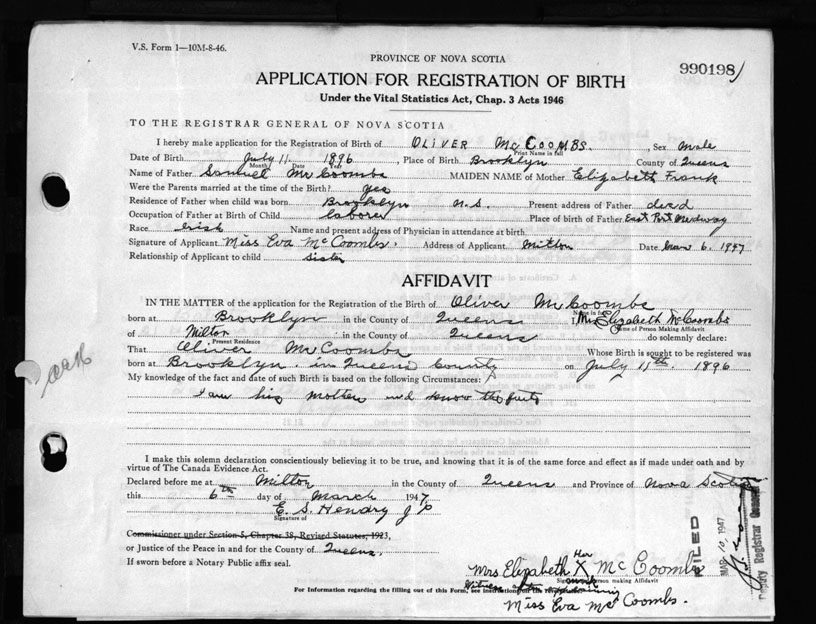 V.S. Form 1—10M-8-46.
PROVINCE OF NOVA SCOTIA
990198
APPLICATION FOR REGISTRATION OF BIRTH
Under the Vital Statistics Act, Chap. 3 Acts 1946
TO THE REGISTRAR GENERAL OF NOVA SCOTIA
I hereby make application for the Registration of Birth of OLIVER McCOOMBS. , Sex Male
Print Name in full
Date of Birth July 11. 1896 , Place of Birth Brooklyn County of Queens
Month Date Year
Name of Father Samuel McCoombs MAIDEN NAME of Mother Elizabeth Frank
Were the Parents married at the time of the Birth? yes
Residence of Father when child was born Brooklyn N.S. Present address of Father dead
Occupation of Father at Birth of Child laborer Place of birth of Father East Port Medway
Race Irish Name and present address of Physician in attendance at birth
Signature of Applicant Miss Eva McCoombs. Address of Applicant Milton Date Mar 6. 1947
Relationship of Applicant to child sister
AFFIDAVIT
IN THE MATTER of the application for the Registration of Birth of Oliver McCoombs
Name in full
born at Brooklyn in the County of Queens I, Mrs Elizabeth McCoombs
Name of Person Making Affidavit
of Milton in the County of Queens do solemnly declare:
Present Residence
That Oliver McCoombs Whose Birth is sought to be registered was
born at Brooklyn. in Queens County on July 11th. 1896
My knowledge of the fact and date of such Birth is based on the following Circumstances:
I am his mother and know the facts
I make this solemn declaration conscientiously believing it to be true, and knowing that it is of the same force and effect as if made under oath and by
virtue of The Canada Evidence Act.
Declared before me at Milton in the County of Queens and Province of Nova Scotia
this 6th day of March 1947
E. S. Hendry J P
Signature of
Commissioner under Section 5, Chapter 38, Revised Statutes, 1923,
or Justice of the Peace in and for the County of Queens.
If sworn before a Notary Public affix seal.
Her
Mrs Elizabeth X McCoombs
mark
Signature of Person making Affidavit
For Information regarding the filling out of this Form, see Instructions on the
Witness
Miss Eva McCoombs.
FILED
MAR 10, 1947
Deputy Registrar General